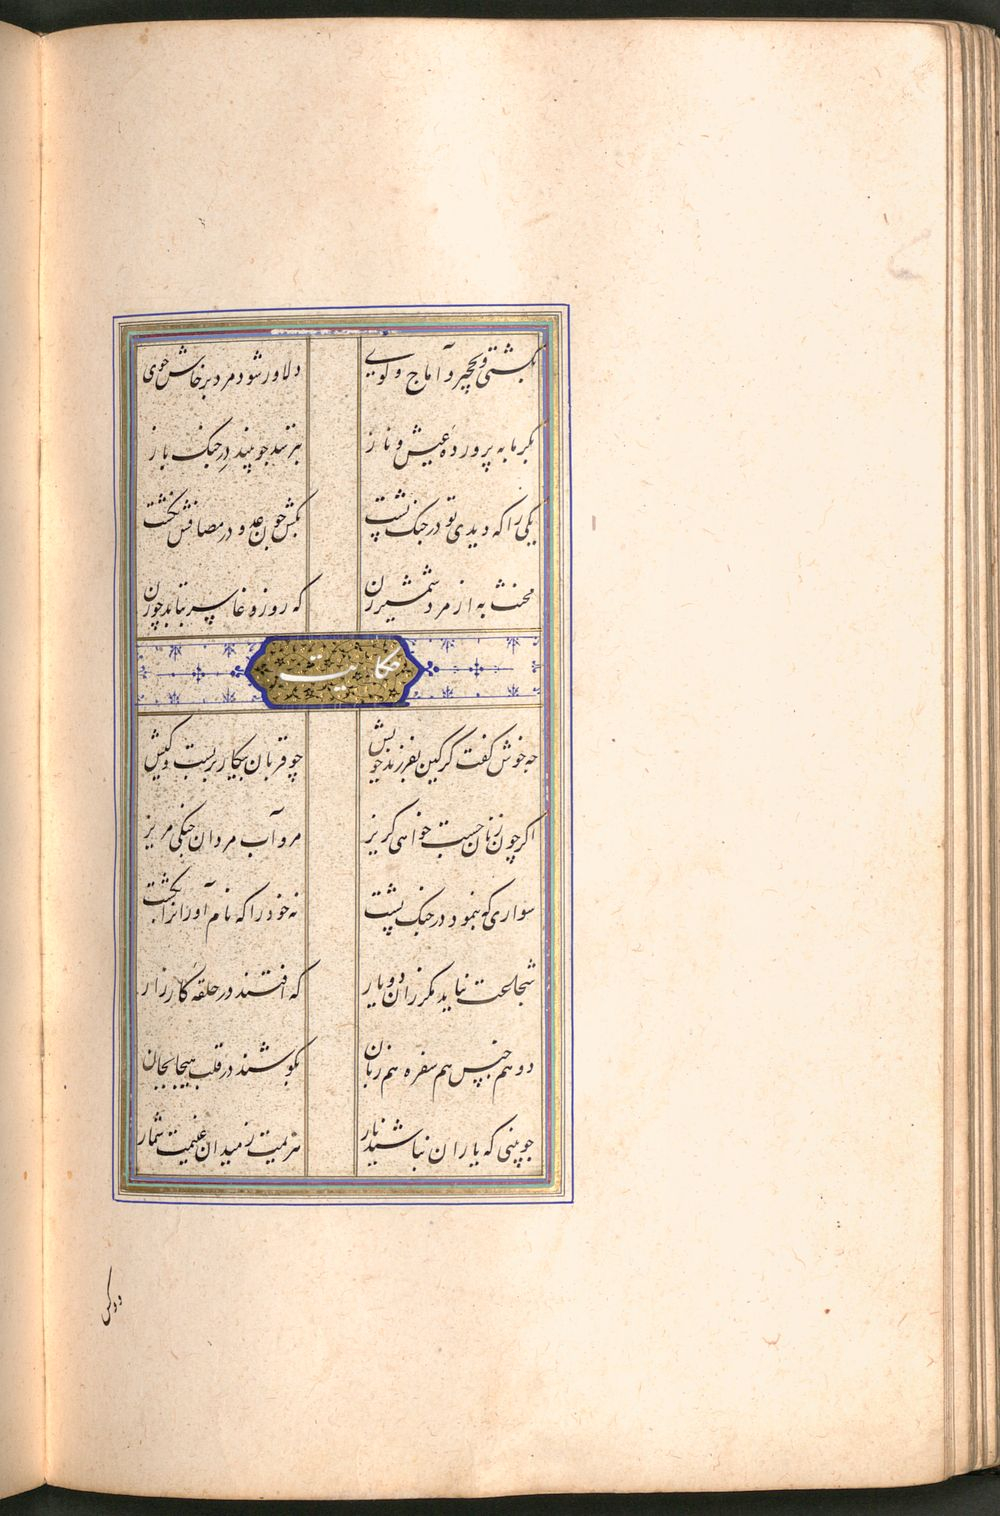 بکشتی و نخچیر و آماج و کوی دلاور شود مرد پرخاش جوی
بکرمابه پرورده عیش و ناز بترسد چو بیند در جنک باز
یکی را که دیدی تو در جنک پشت بکش چون عدو در مصافش نکشت
مخنث به از مرد شمشیرزن که روز وغا سر بتابد چو زن
حکایت
چه خوش کفت کرکین بفرزند خویش چو قربان پیکار بربست و کیش
اکر چون زنان جست خواهی کریز مرو آب مردان جنکی مریز
سواری که بنمود در جنک پشت نه خود را که نام آورانرا بکشت
شجاعت نیاید مکر زان دو یار که افتند در حلقهٔ کارزار
دو هم جنس هم سفره هم زبان بکوشند در قلب هیجا بجان
چو بینی که یاران نباشند یار هزیمت ز میدان غنیمت شمار
دو کس